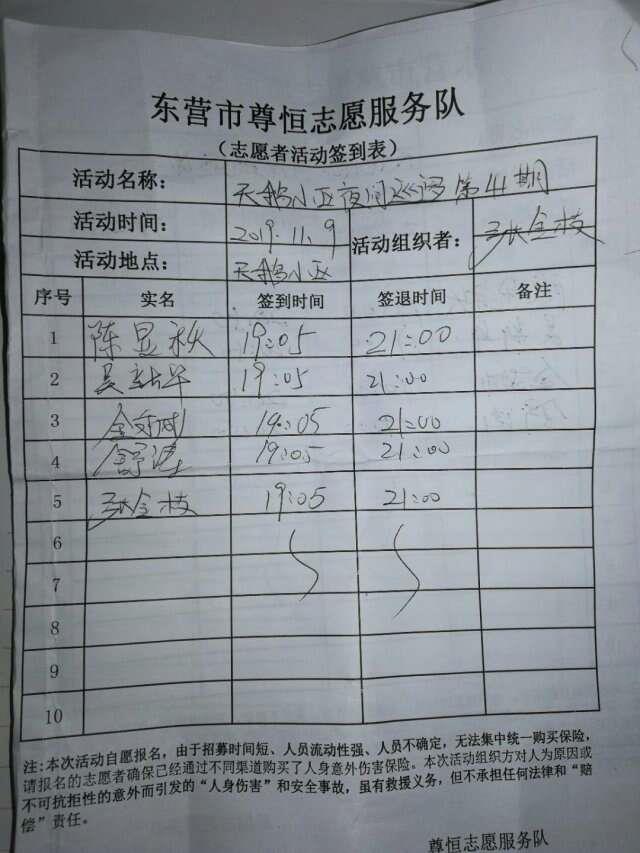 东营市尊恒志愿服务队
（志愿者活动签到表）
活动名称： 天鹅小区夜间巡逻第41期
活动时间： 2019.11.9 活动组织者： 张金枝
活动地点： 天鹅小区
序号 实名 签到时间 签退时间 备注
1 陈显秋 19:05 21:00
2 吴 19:05 21:00
3 19:05 21:00
4 19:05 21:00
5 张金枝 19:05 21:00
6
7
8
9
10
注:本次活动自愿报名，由于招募时间短、人员流动性强、人员不确定，无法集中统一购买保险，
请报名的志愿者确保已经通过不同渠道购买了人身意外伤害保险。本次活动组织方对人为原因或
不可抗拒性的意外而引发的“人身伤害”和安全事故，虽有救援义务，但不承担任何法律和“赔
偿”责任。
尊恒志愿服务队